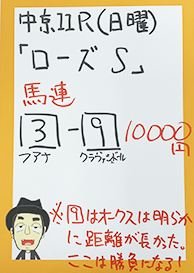 中京11R(日曜)
「ローズS」
馬連
3-9 10000円
ファナ クラヴァンドール
※9はオークスは明らか
に距離が長かった。
ここは勝負になる!